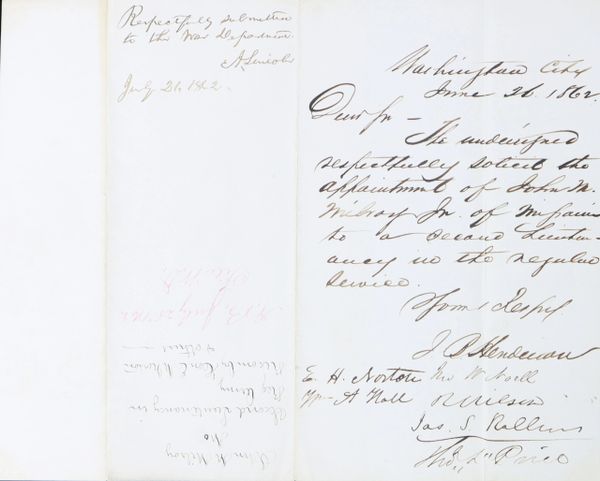 Respectfully submitted
to the War Department.
A. Lincoln
July 26, 1862.
Washington City
June 26 1862.
Dear Sir —
The undersigned
respectfully solicit the
appointment of John M.
Milroy Jr. of Missouri
to a Second Lieuten-
ancy in the regular
service.
Yours Respy.
J B Henderson
E. H. Norton Jno W Noell
Wm A Hall R Wilson
Jas. S Rollins
Tho. L Price
July 25
John M Milroy
Mo
Second Lieutenancy in
Reg Army
Recom by
& others